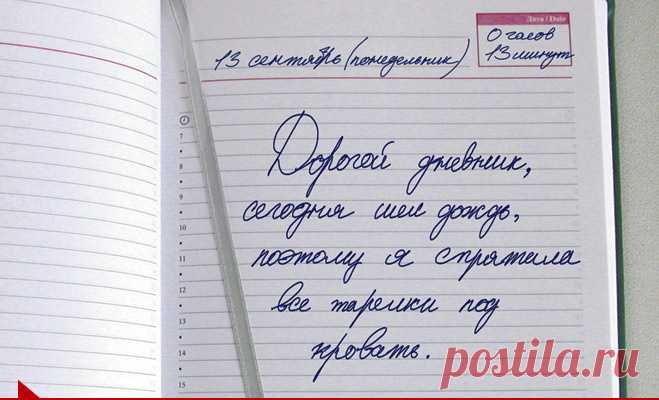 Дата / Date
0 часов
13 минут
13 сентябрь (понедельник)
Дорогой дневник,
сегодня шел дождь,
поэтому я спрятала
все тарелки под
кровать.
7
8
9
10
11
12
13
14
15
postila.ru